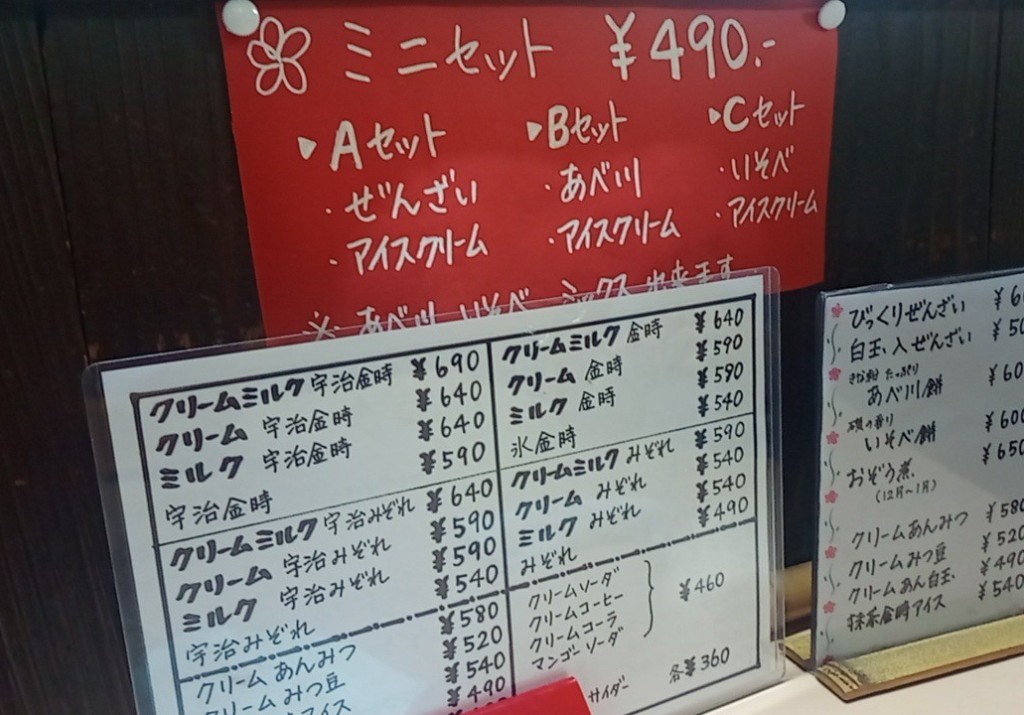 ミニセット ¥490.-
▶Aセット
・ぜんざい
・アイスクリーム
▶Bセット
・あべ川
・アイスクリーム
▶Cセット
・いそべ
・アイスクリーム
※あべ川 いそべ ミックス出来ます
クリームミルク 宇治金時 ¥690
クリーム 宇治金時 ¥640
ミルク 宇治金時 ¥640
宇治金時 ¥590
クリームミルク 宇治みぞれ ¥640
クリーム 宇治みぞれ ¥590
ミルク 宇治みぞれ ¥590
宇治みぞれ ¥540
クリームあんみつ ¥580
クリームみつ豆 ¥520
¥540
アイス ¥490
クリームミルク 金時 ¥640
クリーム 金時 ¥590
ミルク 金時 ¥590
氷金時 ¥540
クリームミルク みぞれ ¥590
クリーム みぞれ ¥540
ミルク みぞれ ¥540
みぞれ ¥490
クリームソーダ
クリームコーヒー
クリームコーラ
マンゴーソーダ
¥460
サイダー 各¥360
びっくりぜんざい
白玉入ぜんざい
きな粉たっぷり
あべ川餅
磯の香り
いそべ餅 ¥600
おぞう煮 ¥650
(12月〜1月)
クリームあんみつ ¥580
クリームみつ豆 ¥520
クリームあん白玉 ¥490
抹茶金時アイス ¥540